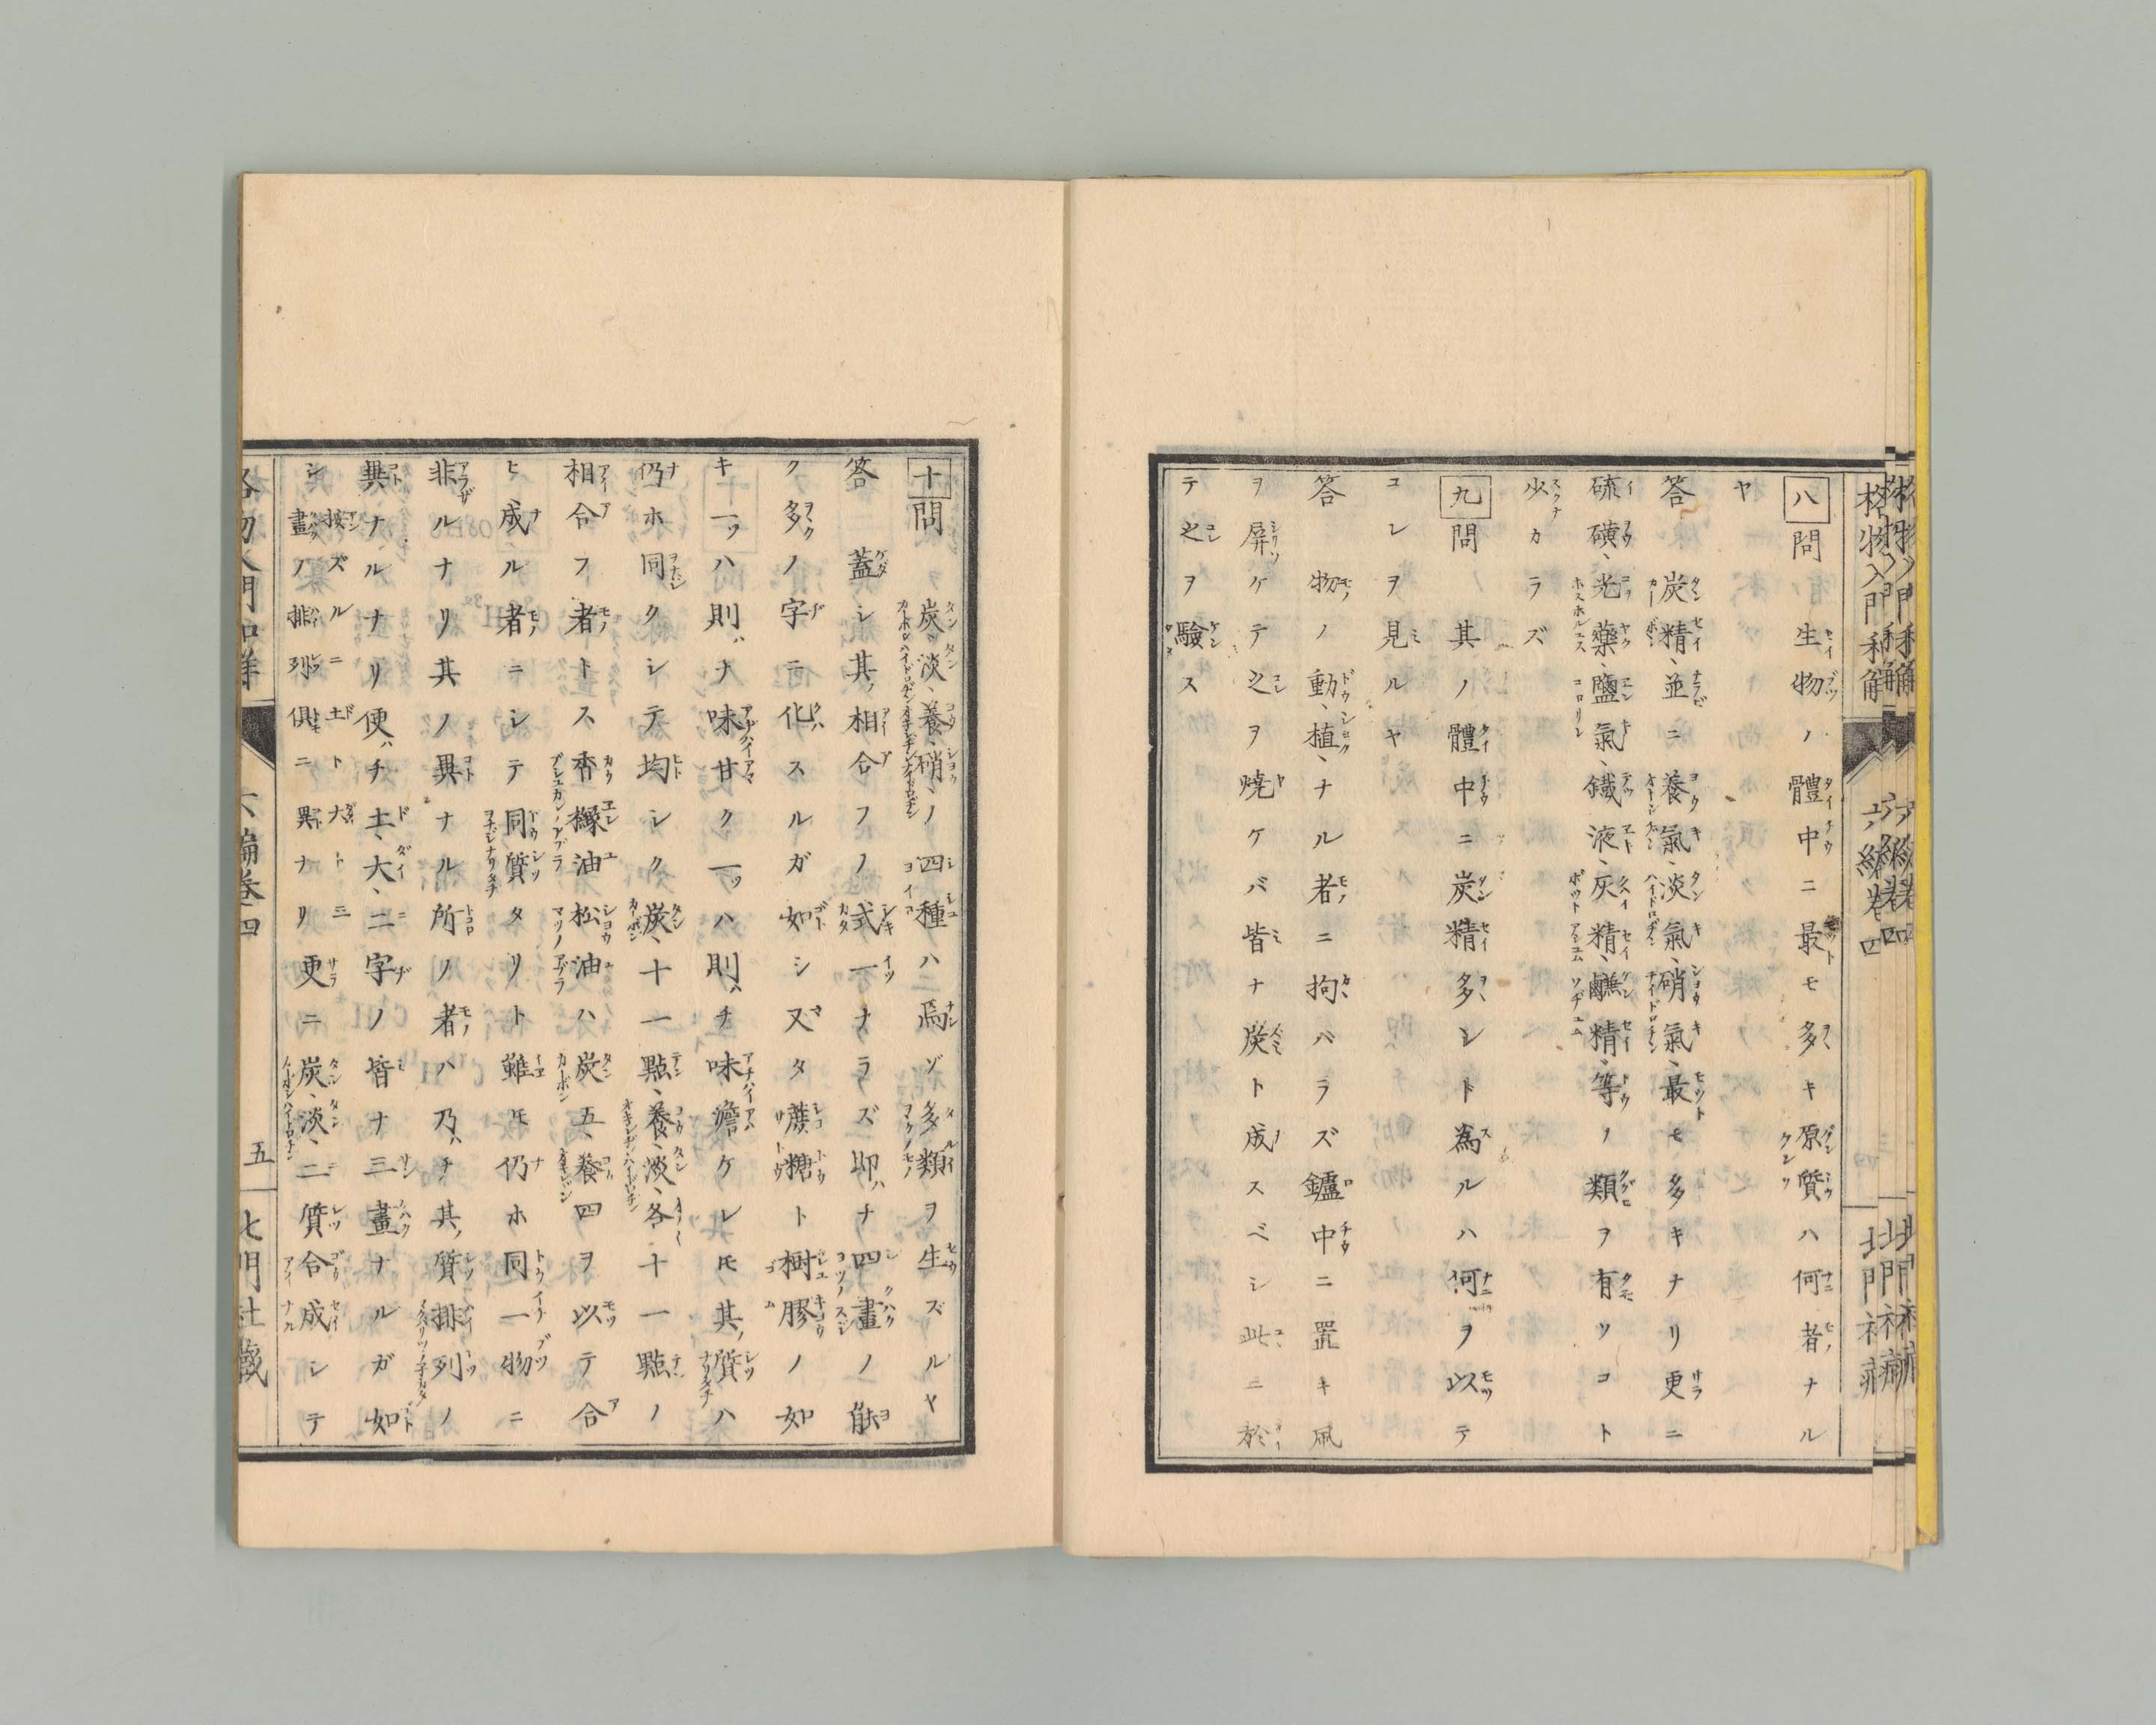 格物入門和解
六編卷四
北門社藏
八問 生物ノ體中ニ最モ多キ原質ハ何者ナル
ヤ
答 炭精、並ニ養氣、淡氣、硝氣、最モ多キナリ更ニ
硫磺、光藥、鹽氣、鐵液、灰精、鹻精、等ノ類ヲ有ツコト
少カラズ
九問 其ノ體中ニ炭精多シト爲ルハ何ヲ以テ
コレヲ見ルヤ
答 物ノ動、植、ナル者ニ拘バラズ鑪中ニ置キ風
ヲ屏ケテ之ヲ燒ケバ皆ナ炭ト成スベシ此ニ於
テ之ヲ驗ス
十問 炭、淡、養、硝、ノ四種ハ焉ゾ多類ヲ生ズルヤ
答 蓋シ其ノ相合フノ式一ナラズ卽ハチ四畫ノ能
ク多ノ字ニ化スルガ如シ又タ蔗糖ト樹膠ノ如
キ一ツハ則ハチ味甘ク一ツハ則ハチ味澹ケレ𪜈其ノ質ハ
仍ホ同クシテ均シク炭、十一點、養、淡、各十一點ノ
相合フ者トス香櫞油松油ハ炭五、養四ヲ以テ合
ヒ成ル者ニシテ同質タリト雖𪜈仍ホ同一物ニ
非ルナリ其ノ異ナル所ノ者ハ乃ハチ其ノ質排列ノ
異ナルナリ便ハチ土、大、二字ノ皆ナ三畫ナルガ如
シ
按ズルニ土ト大ト三
畫ノ排列俱ニ異ナリ
更ニ炭、淡、二質合成シテ
格物入門和解
六編卷四
五
北門社藏